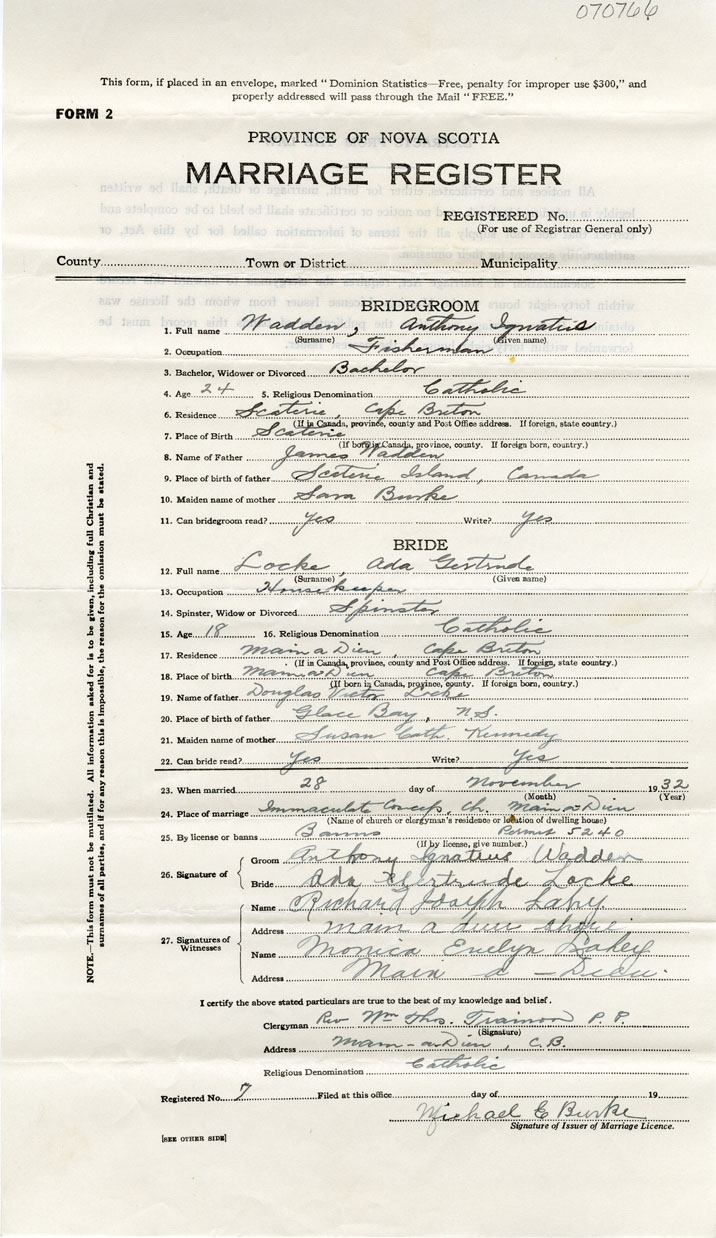 070766
This form, if placed in an envelope, marked "Dominion Statistics—Free, penalty for improper use $300," and
properly addressed will pass through the Mail "FREE."
FORM 2
PROVINCE OF NOVA SCOTIA
MARRIAGE REGISTER
REGISTERED No.
(For use of Registrar General only)
County Town or District Municipality
BRIDEGROOM
1. Full name Wadden, Anthony Ignatius
(Surname) (Given name)
2. Occupation Fisherman
3. Bachelor, Widower or Divorced Bachelor
4. Age 24 5. Religious Denomination Catholic
6. Residence Scaterie, Cape Breton
(If in Canada, province, county and Post Office address. If foreign, state country.)
7. Place of Birth Scaterie
(If born in Canada, province, county. If foreign born, country.)
8. Name of Father James Wadden
9. Place of birth of father Scaterie Island, Canada
10. Maiden name of mother Sara Burke
11. Can bridegroom read? yes Write? yes
BRIDE
12. Full name Locke, Ada Gertrude
(Surname) (Given name)
13. Occupation Housekeeper
14. Spinster, Widow or Divorced Spinster
15. Age 18 16. Religious Denomination Catholic
17. Residence Main a Dieu, Cape Breton
(If in Canada, province, county and Post Office address. If foreign, state country.)
18. Place of birth Main a Dieu Cape Breton
(If born in Canada, province, county. If foreign born, country.)
19. Name of father Douglas Victor Locke
20. Place of birth of father Glace Bay, N.S.
21. Maiden name of mother Susan Cath. Kennedy
22. Can bride read? Yes Write? Yes
23. When married 28 day of November 1932
(Month) (Year)
24. Place of marriage Immaculate Concep. Ch. Main a Dieu
(Name of church or clergyman's residence or location of dwelling house)
25. By license or banns Banns Permit 5240
(If by license, give number.)
26. Signature of Groom Anthony Ignatius Wadden
Bride Ada Gertrude Locke
27. Signatures of Witnesses Name Richard Joseph Lahey
Address main a dieu shore
Name Monica Evelyn Lahey
Address Main a - Dieu.
I certify the above stated particulars are true to the best of my knowledge and belief.
Clergyman Rev Wm Thos. Trainor P. P.
(Signature)
Address Main-a-Dieu, C.B.
Religious Denomination Catholic
Registered No. 7 Filed at this office day of 19
Michael E Burke
Signature of Issuer of Marriage Licence.
[SEE OTHER SIDE]
NOTE.—This form must not be mutilated. All information asked for is to be given, including full Christian and
surnames of all parties, and if for any reason this is impossible, the reason for the omission must be stated.